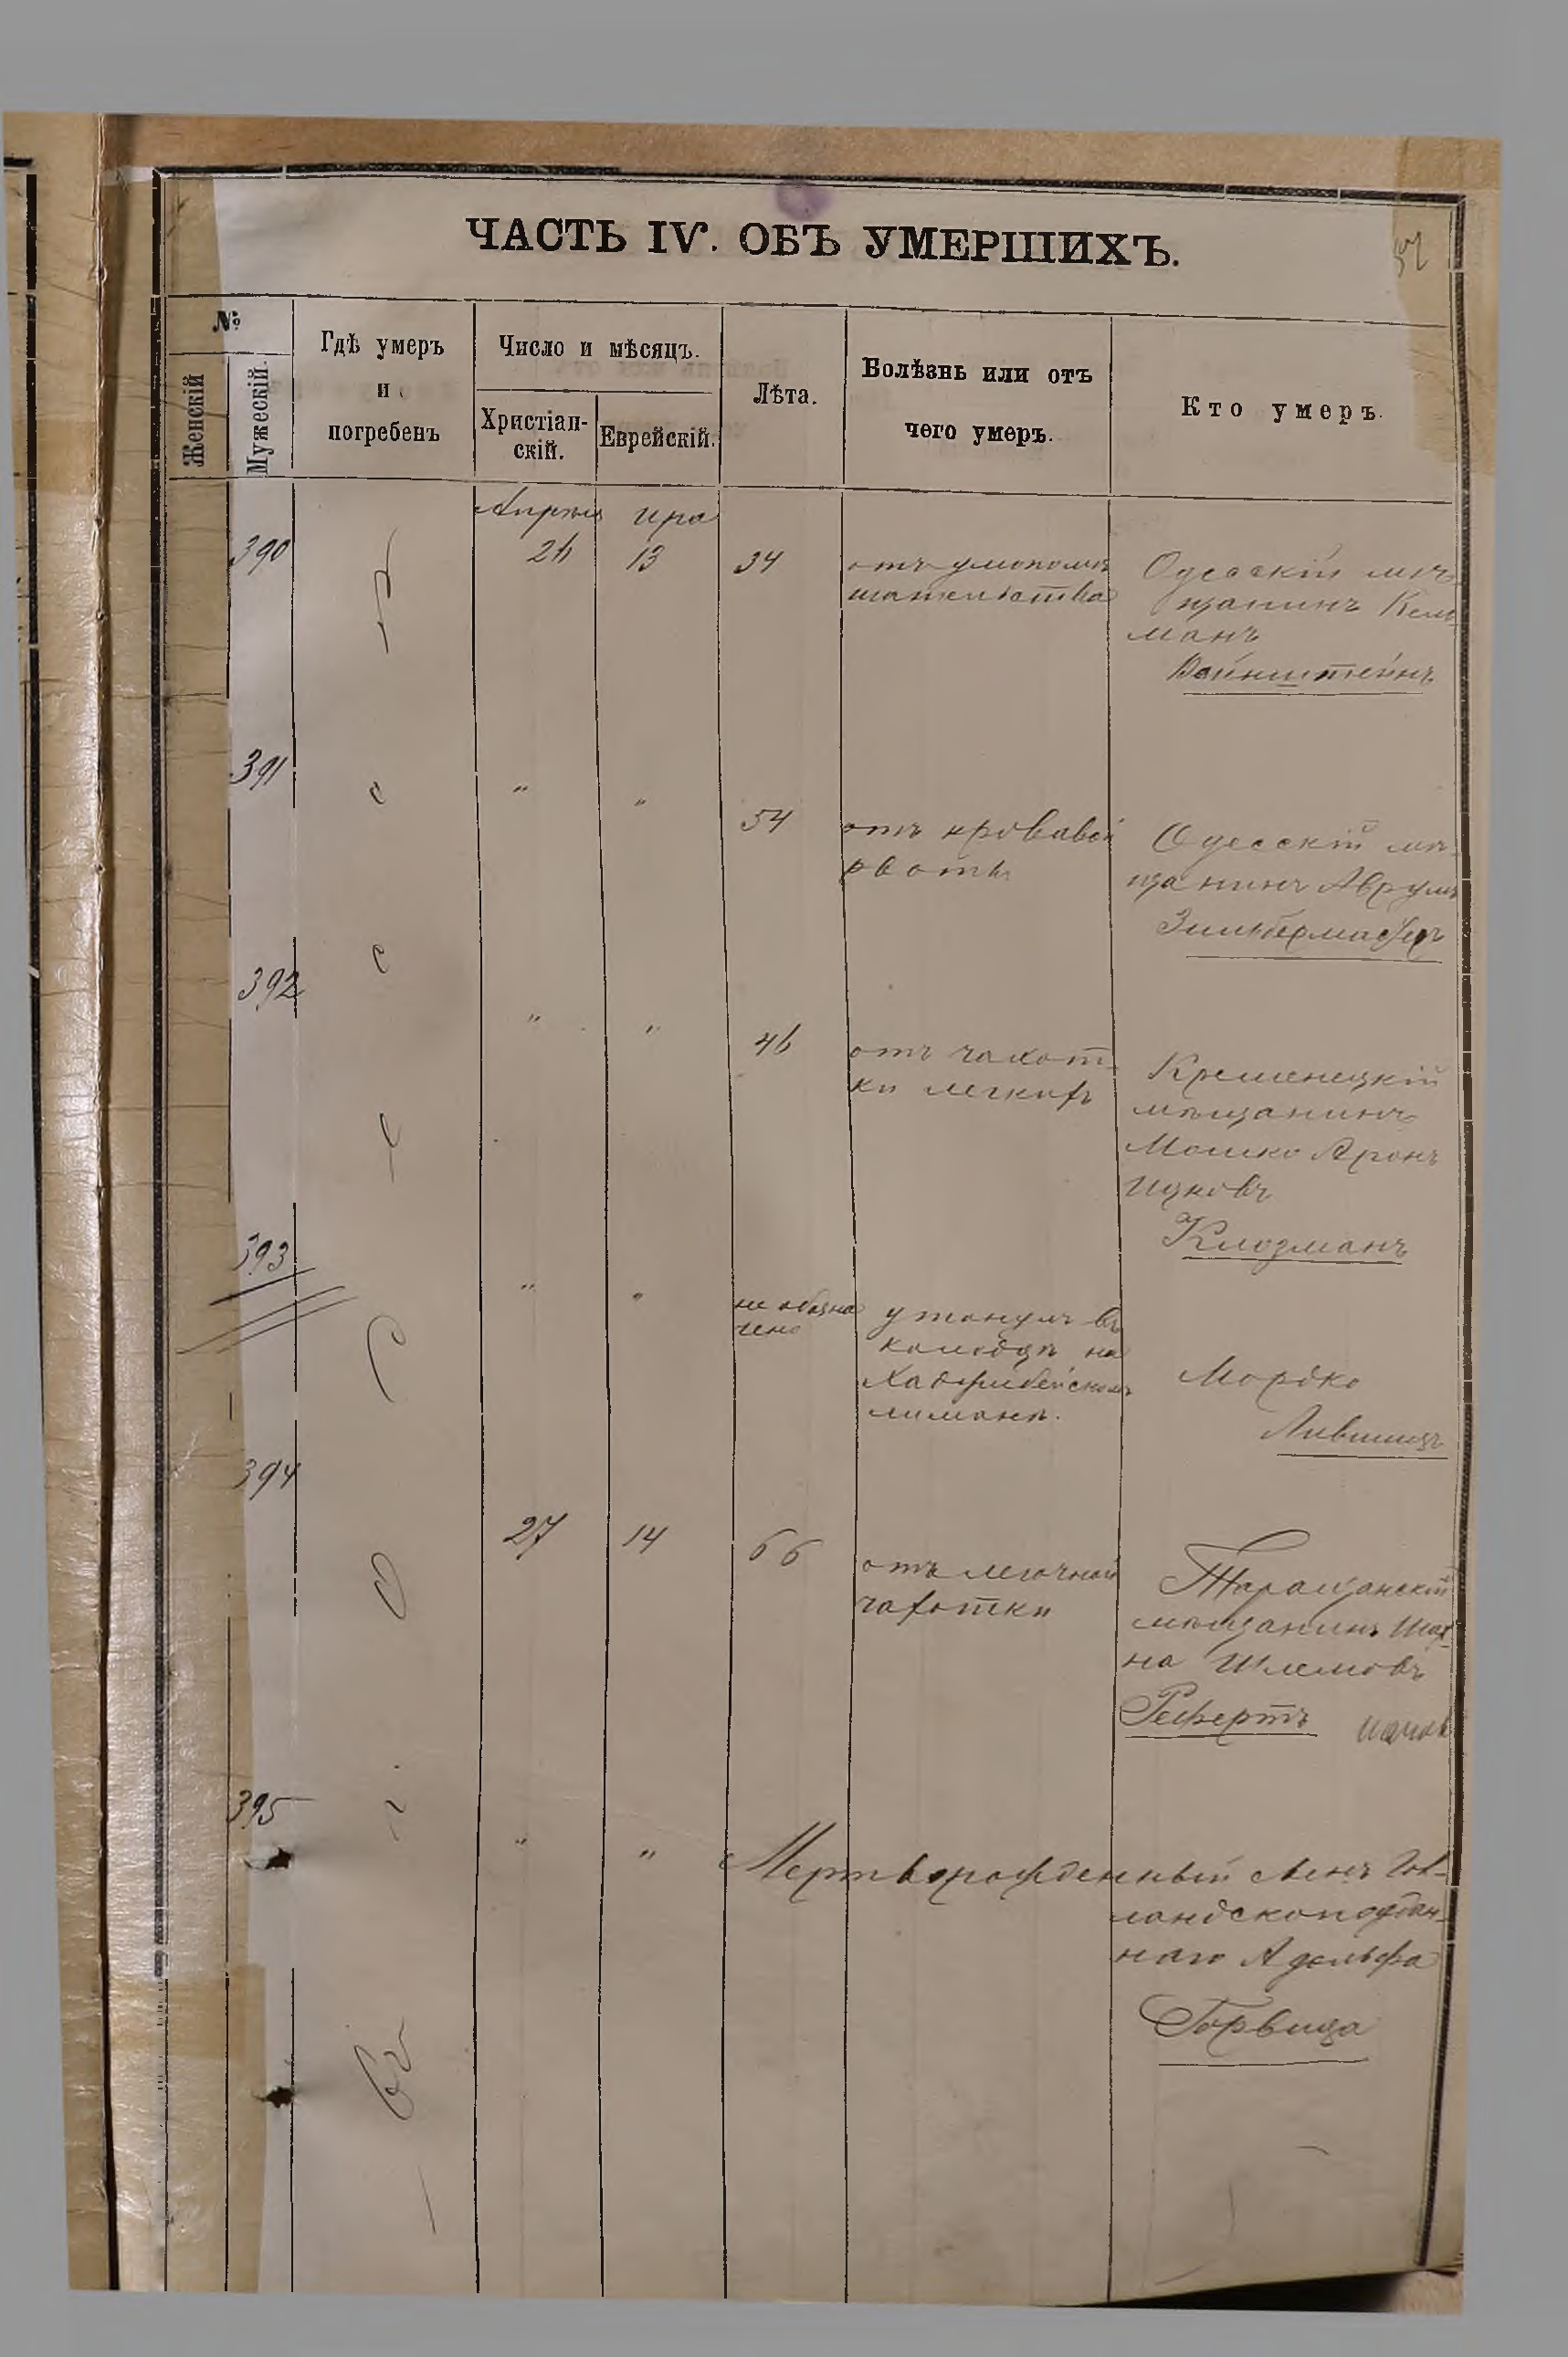 ЧАСТЬ IV. ОБЪ УМЕРШИХЪ.
№
Женскій
Мужескій.
Гдѣ умеръ
и
погребенъ
Число и мѣсяцъ.
Христіан-
скій.
Еврейскій.
Лѣта.
Болѣзнь или отъ
чего умеръ.
Кто умеръ.
Апрѣля
Ира
390
26
13
34
отъ умопомѣ
шательства
Одесскій мѣ-
щанинъ Кель-
манъ
Вайнштейнъ
391
"
"
54
отъ кровавой
рвоты
Одесскій мѣ-
щанинъ Аврумъ
392
"
"
46
отъ чахот-
ки легкихъ
Кременецкій
мѣщанинъ
Мошко Аронъ
Ицковъ
Клозманъ
393
"
"
не обозна
чено
утонулъ въ
колодцѣ на
Хаджибейскомъ
лиманѣ.
Мордко
Лившицъ
394
27
14
66
отъ легочной
чахотки
Таращанскій
мѣщанинъ Шах-
на Шлемовъ
395
"
"
Мертворожденный сынъ Гол-
ландскоподдан-
наго Адольфа
Горвица